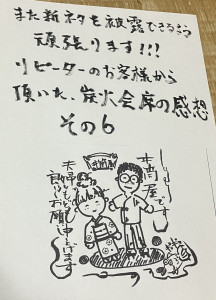 また新ネタを披露できるよう
頑張ります!!!
リピーターのお客様から
頂いた、炭火会席の感想
その6
本間屋です
夫婦ともども
お願い申し上げます